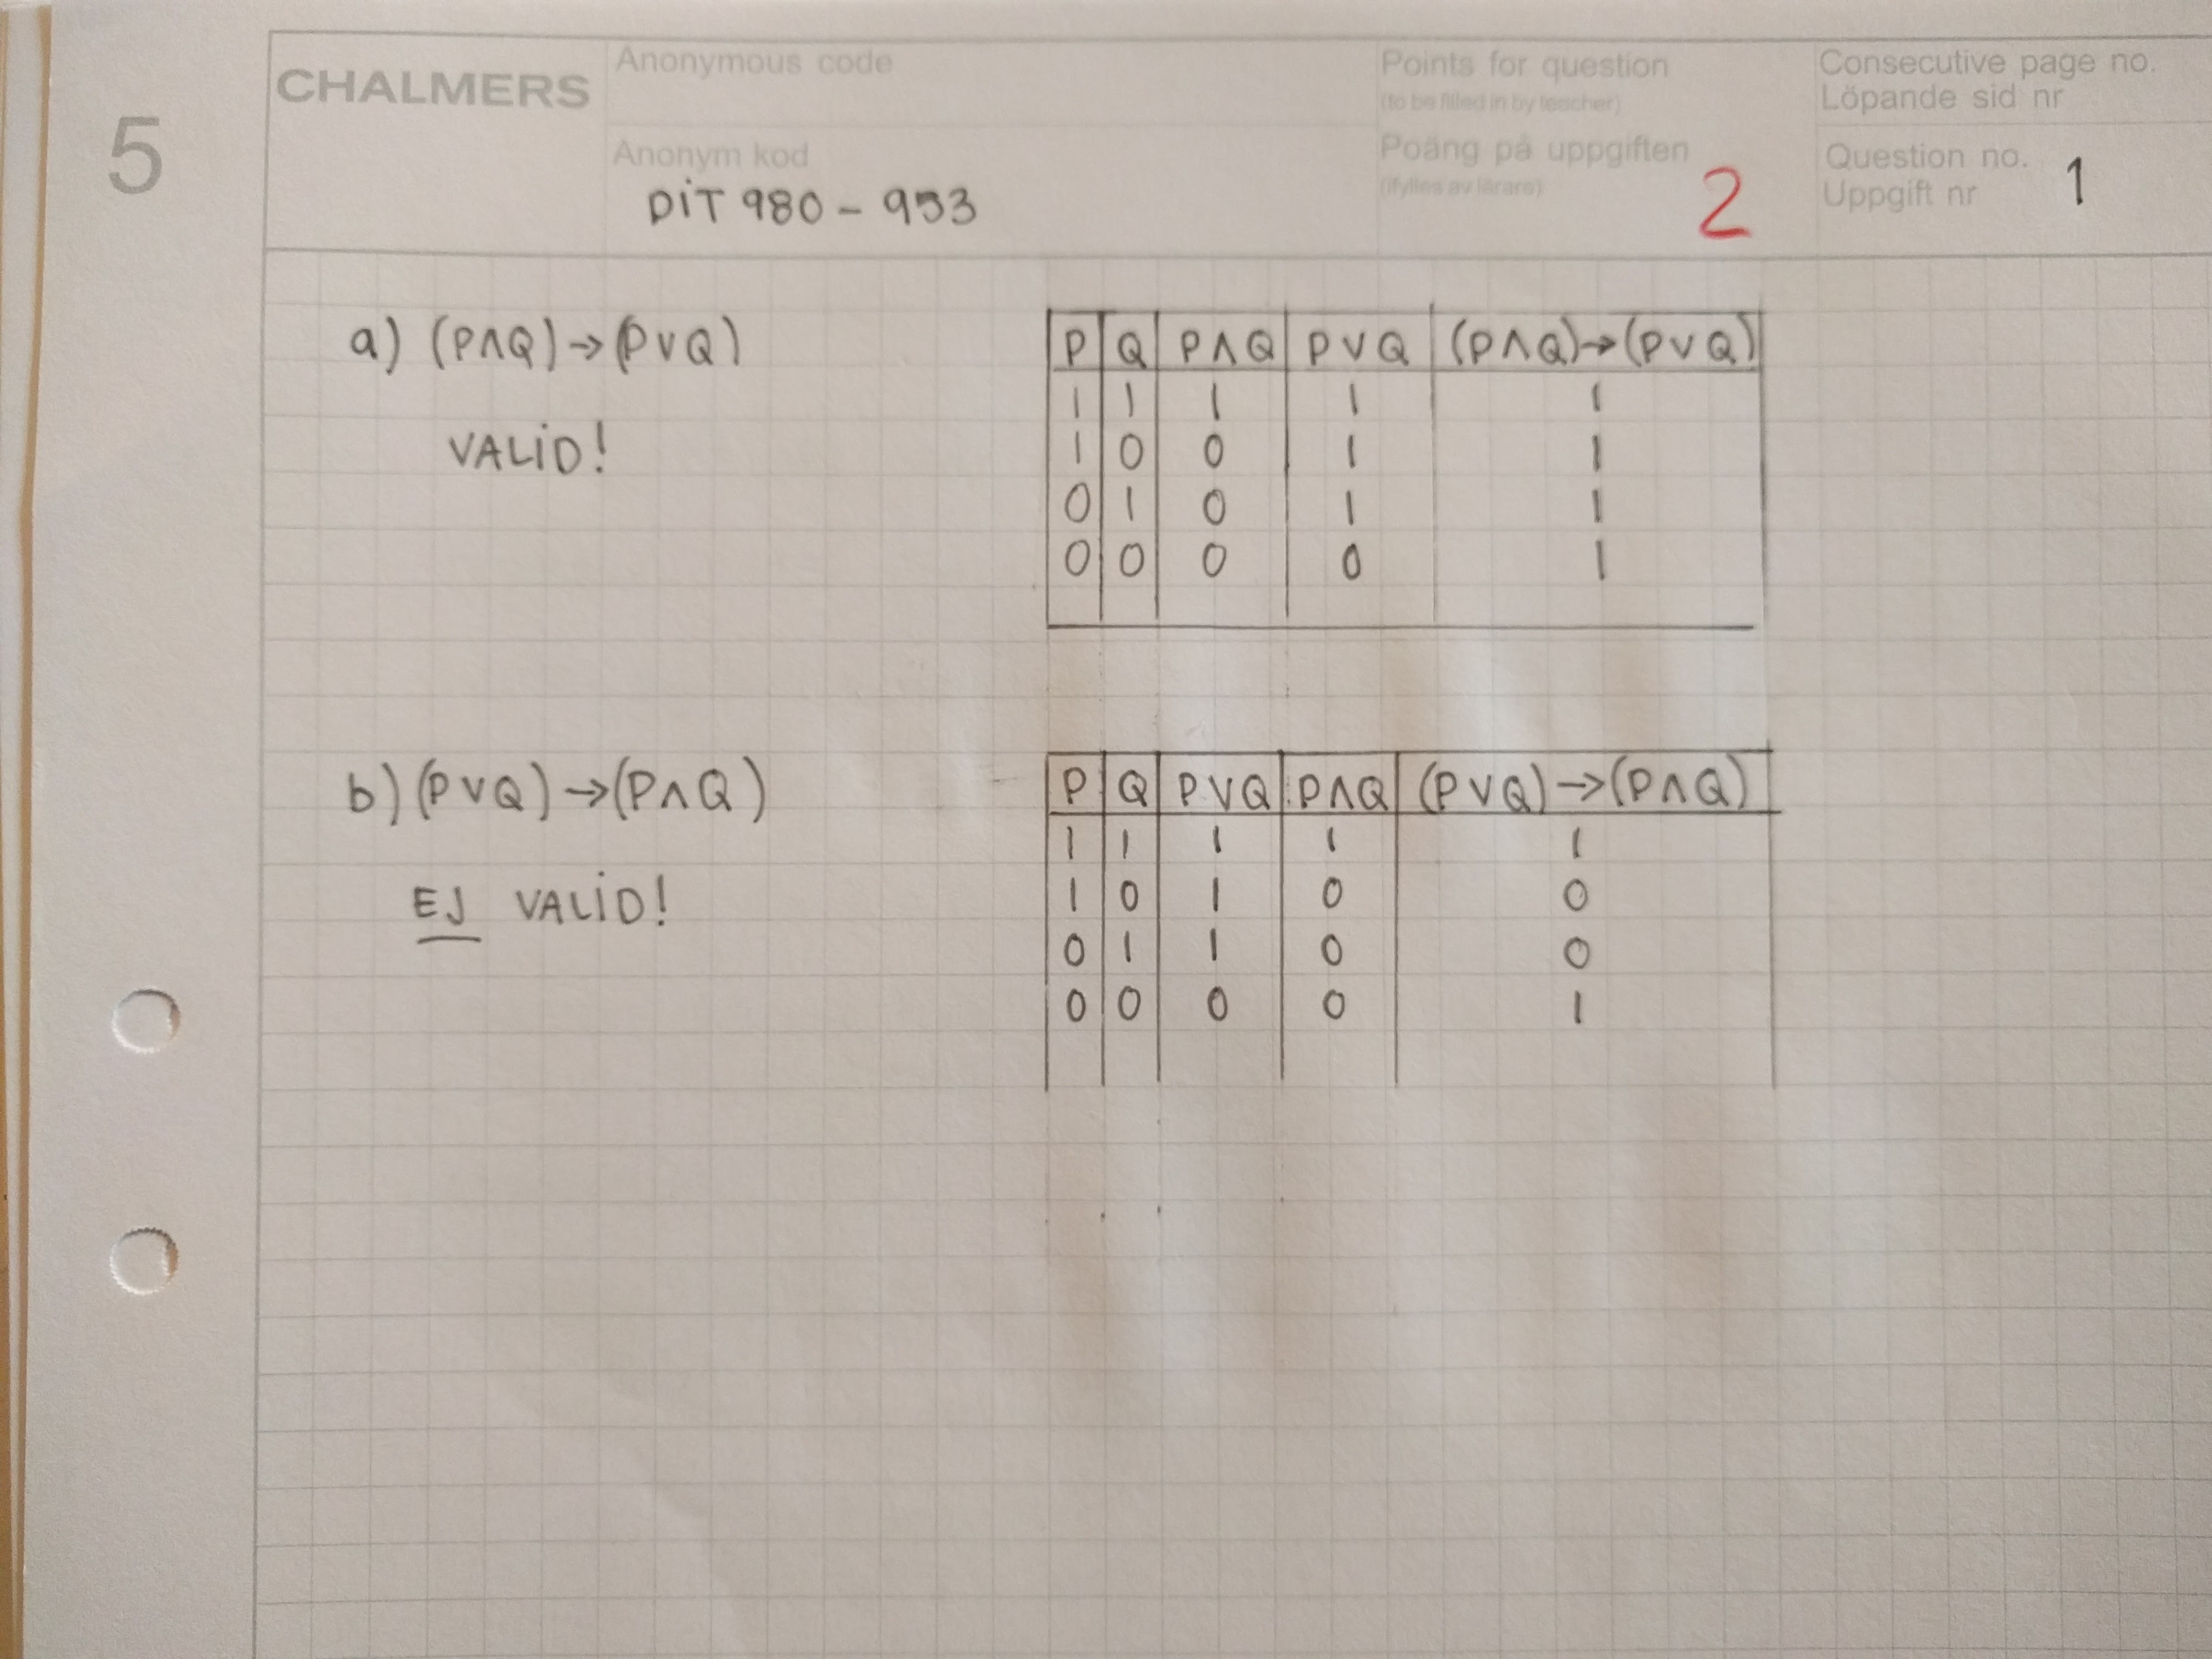 5
CHALMERS
Anonymous code
Anonym kod
DiT 980 - 953
Points for question
(to be filled in by teacher)
Poäng på uppgiften
(ifylles av lärare)
2
Consecutive page no.
Löpande sid nr
Question no.
Uppgift nr
1
a) (P∧Q)→(P∨Q)
VALiD!
P Q P∧Q P∨Q (P∧Q)→(P∨Q)
1 1 1 1 1
1 0 0 1 1
0 1 0 1 1
0 0 0 0 1
b) (P∨Q)→(P∧Q)
EJ VALiD!
P Q P∨Q P∧Q (P∨Q)→(P∧Q)
1 1 1 1 1
1 0 1 0 0
0 1 1 0 0
0 0 0 0 1